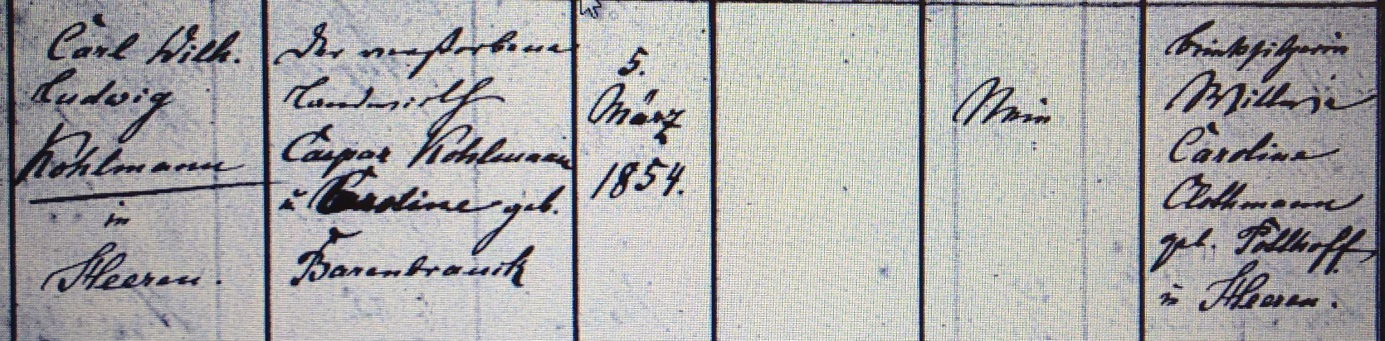 Carl Wilh.
Ludwig
Kohlmann
in
Heeren.
Der verstorbene
Landwirth
Caspar Kohlmann
u Caroline geb.
Barenbrauck
5.
März
1854.
Nein
Caroline
Clothmann
geb. Pöllhoff
in Heeren.